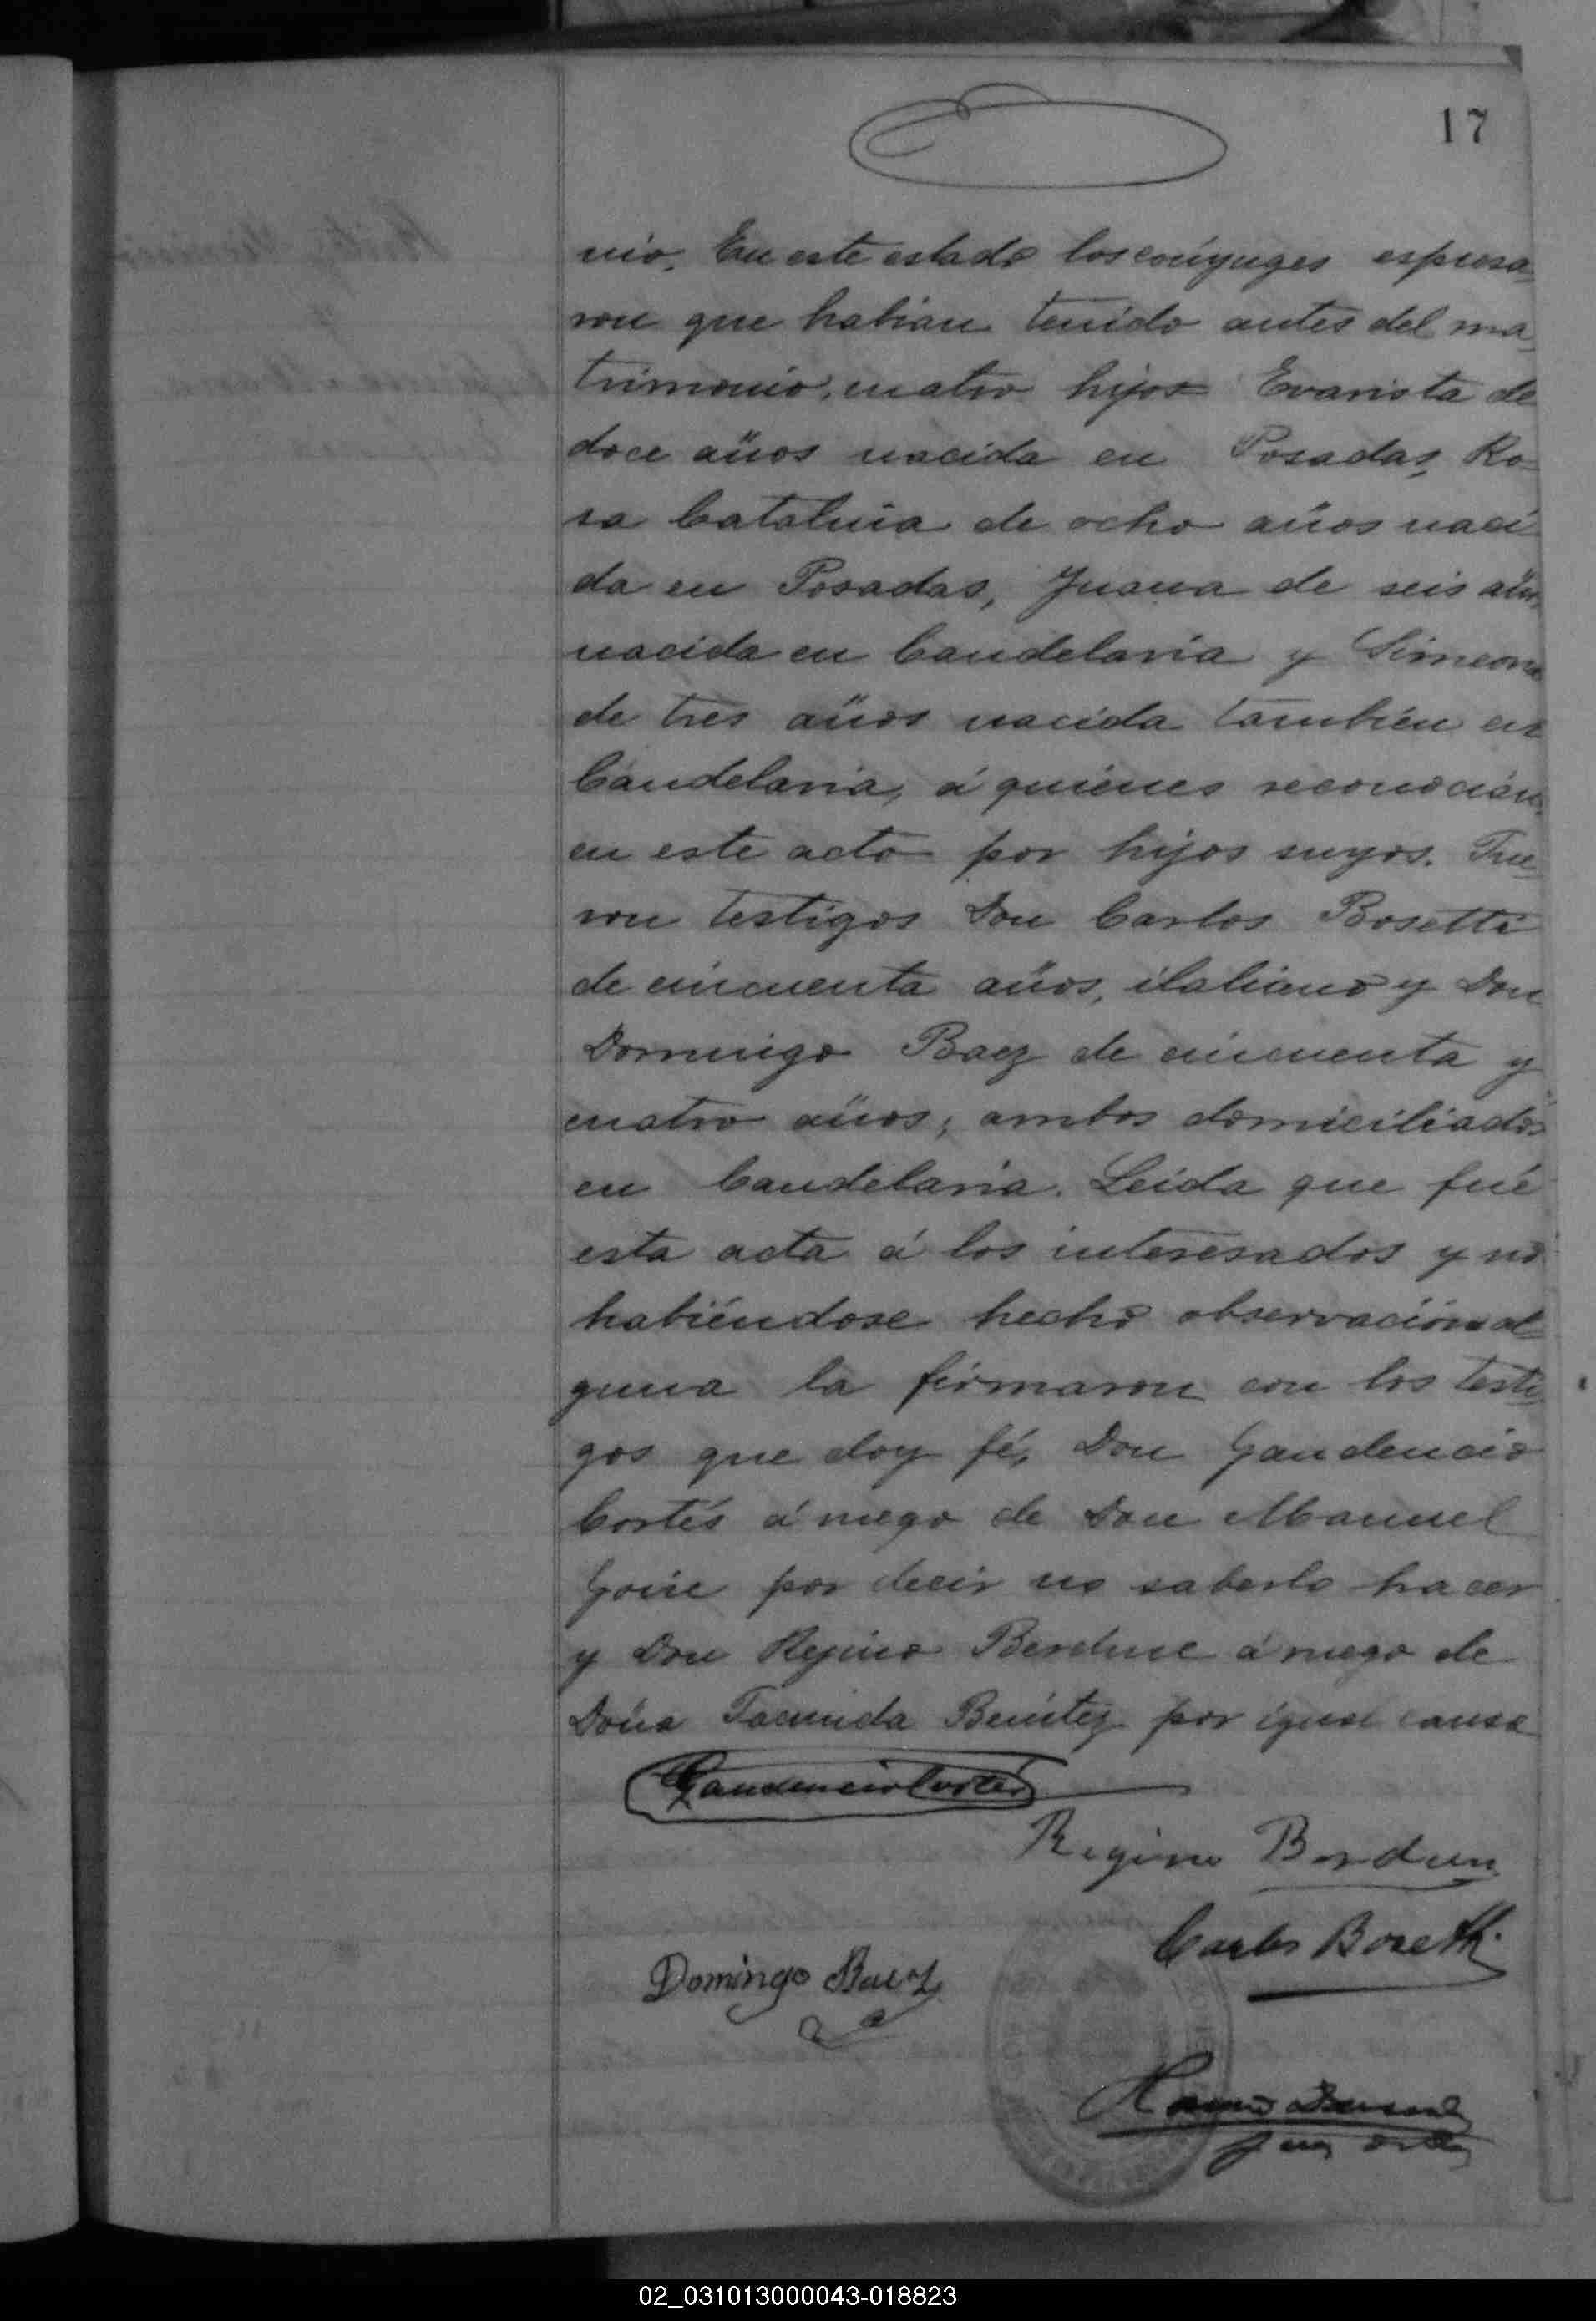 17
nio. En este estado los conyuges espresa
ron que habian tenido antes del ma
trimonio, cuatro hijos Evarista de
doce años nacida en Posadas, Ro=
sa Catalina de ocho años naci
da en Posadas, Juana de seis años
nacida en Candelaria y Simeona
de tres años nacida también en
Candelaria, á quienes reconocian
en este acto por hijos suyos. Fue
ron testigos Don Carlos Bosetti
de cincuenta años, italiano y Don
Domingo Baez de cincuenta y
cuatro años; ambos domiciliados
en Candelaria. Leida que fué
esta acta á los interesados y no
habiéndose hecho observación al
guna la firmaron con los testi
gos que doy fé, Don Gaudencio
Cortés á ruego de Don Manuel
por decir no saberlo hacer
y Don Rejino á ruego de
Doña Facunda Benitez por igual causa
Gaudencio Cortés
Regino
Carlos Bosetti
Domingo Baez
02_031013000043-018823